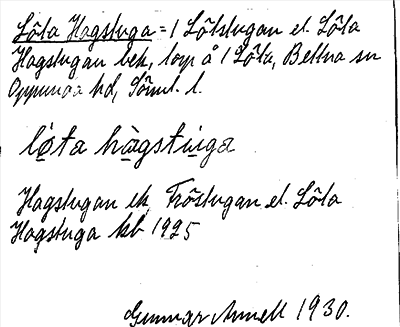 Löta Hagstuga = 1 Lötstugan el. Löta
Hagstugan bek, torp å 1 Löta, Bettna sn
Oppunda hd, Söml. l.
lo̤ta ha̤gstṳga
Hagstugan ek, Fröstugan el. Löta
Hagstuga kb 1925
Gunnar Annell 1930.